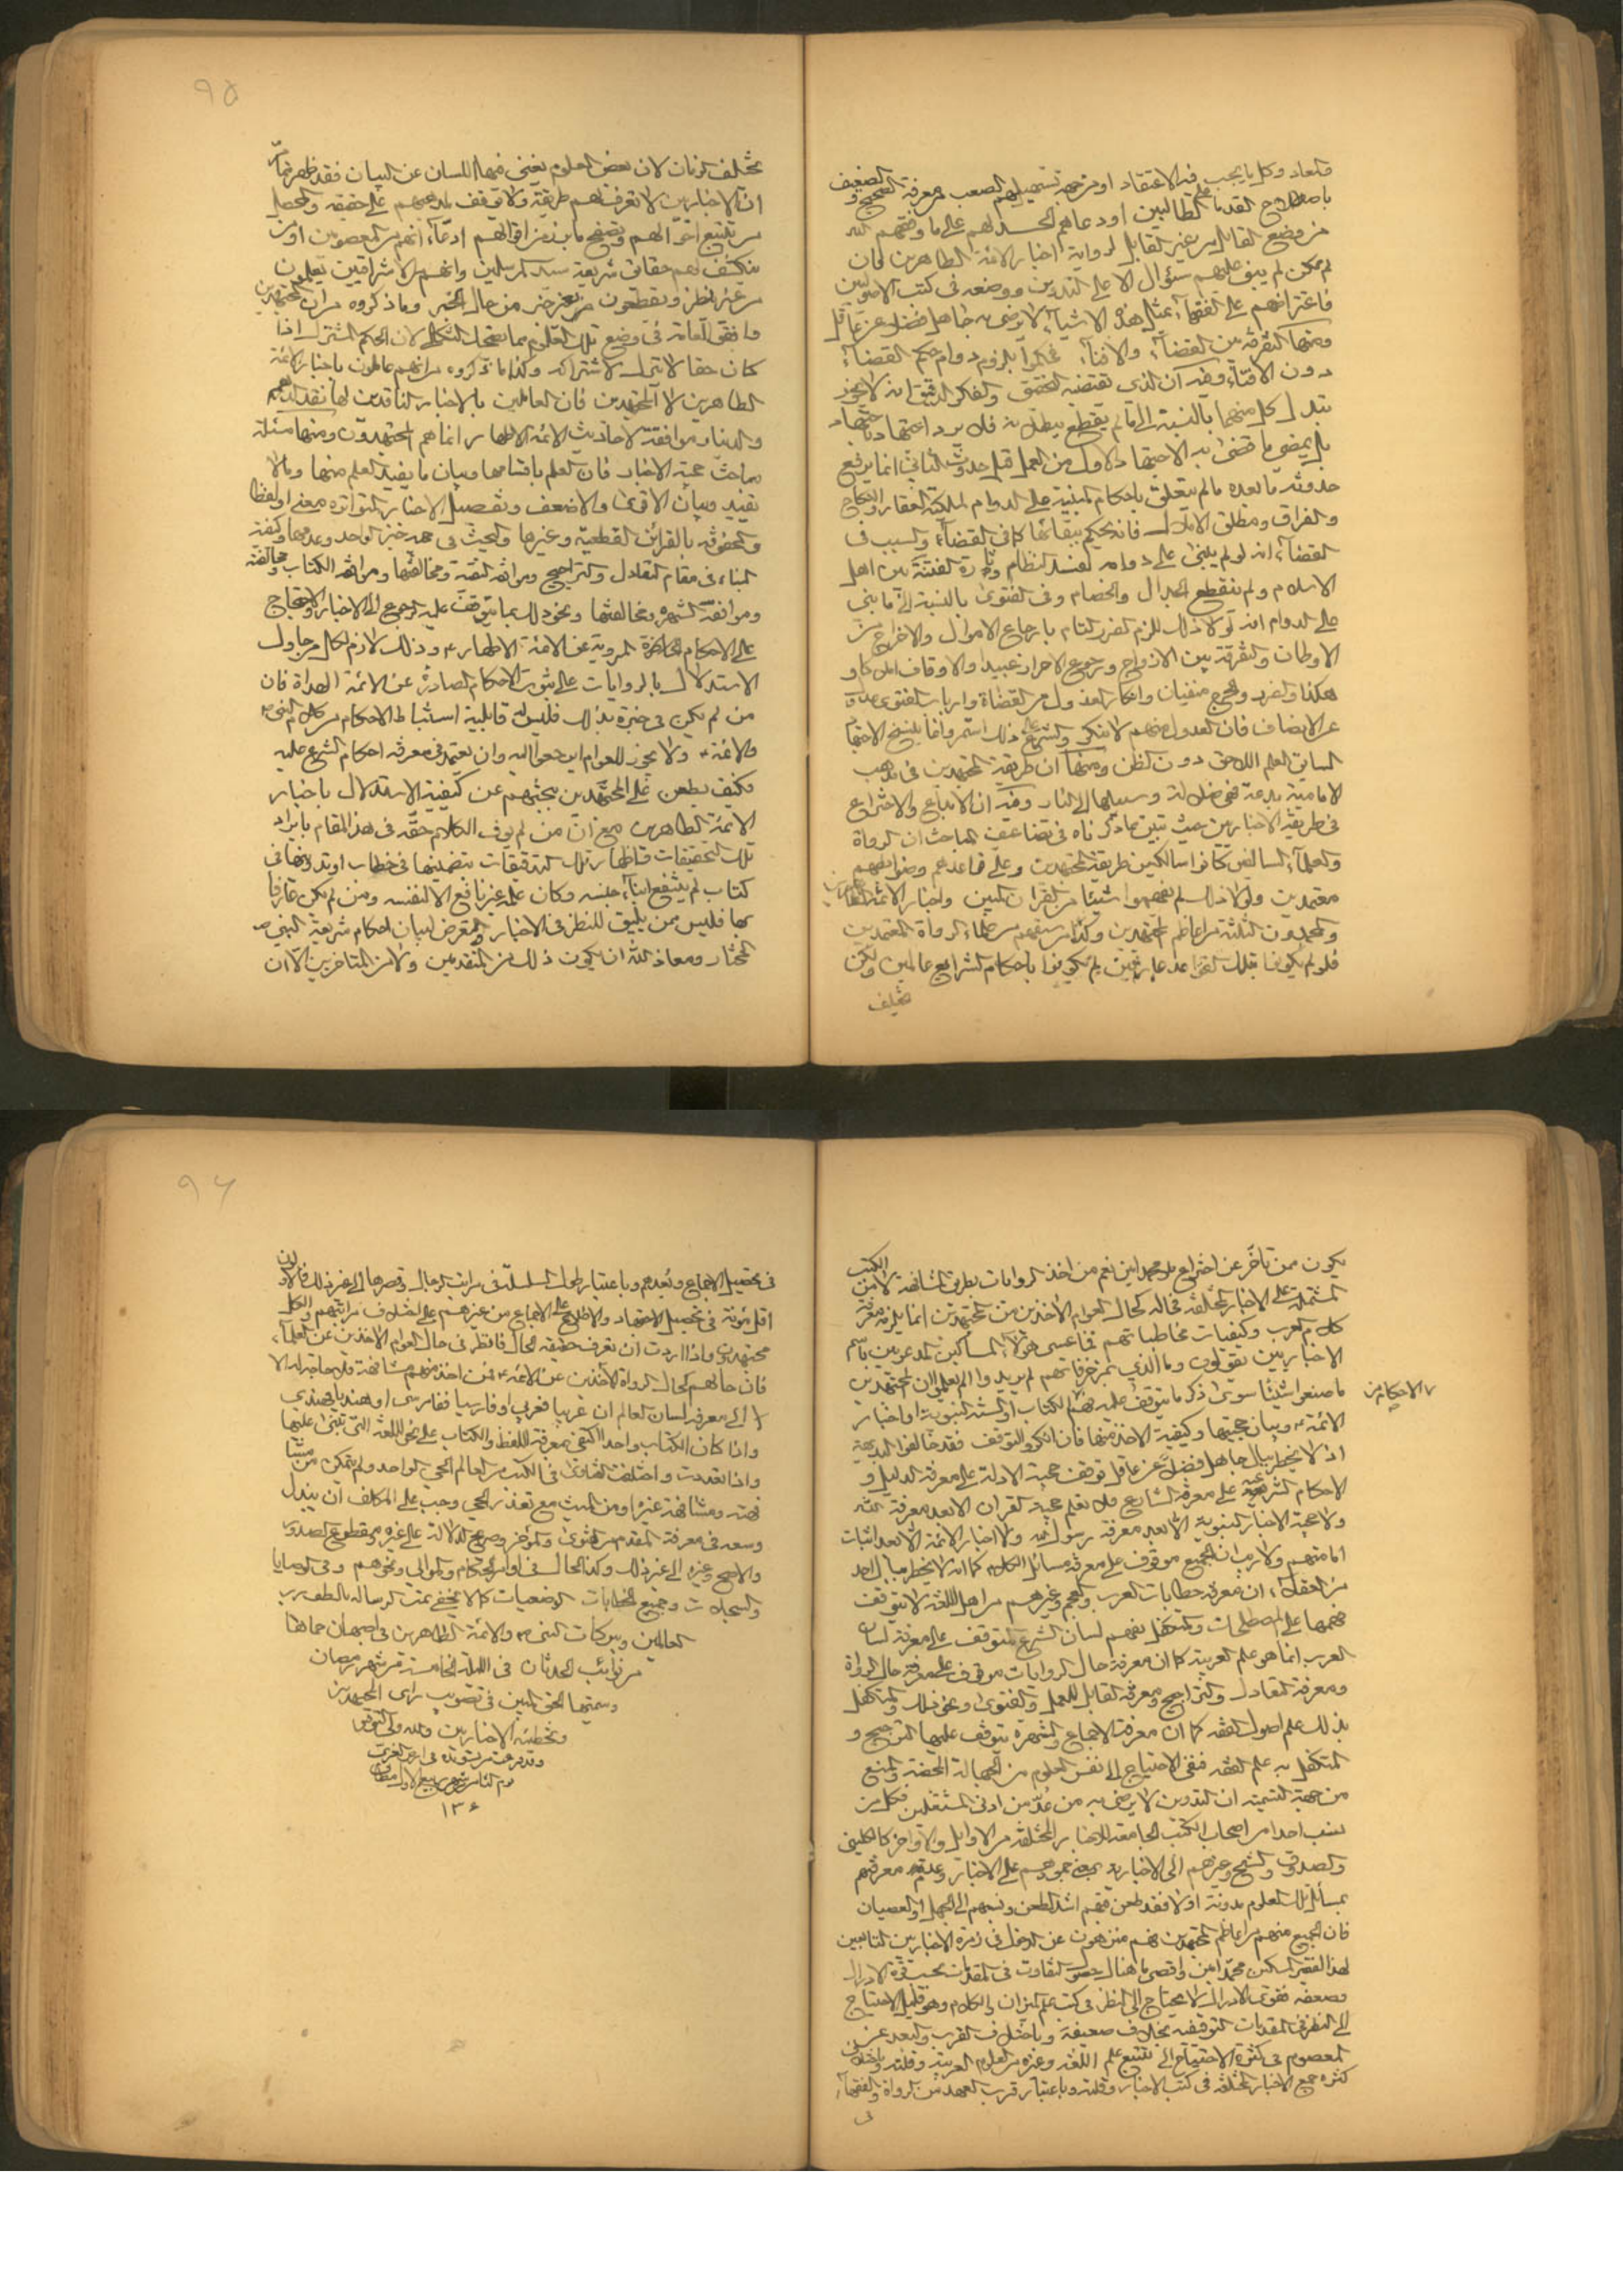 فيعاد وكل ما يجب فيه الاعتقاد او من جهة تسهيلهم الصعب بمعرفة الصحيح والضعيف
باصطلاح القدماء على الطالبين او دعاهم الحسد لهم على ما وفقهم الله
من وضع القابل من غير القابل لرواية اخبار الائمة الطاهرين فان
لم يمكن لم يبق عليهم سؤال الا على التدوين ووضعه في كتب الاصوليين
فاعتراضهم على الفقهاء بمثل هذه الاشياء لا يرضى به جاهل فضلا عن عاقل
ومنها التفرقة بين القضاء والافتاء فحكموا بلزوم دوام حكم القضاء
دون الافتاء وفيه ان الذي تقتضيه التحقيق والفكر الدقيق انه لا يجوز
تبدل كل منهما بالنسبة الى ما لم يقطع ببطلانه فلا يرد اجتهاد باجتهاد
بل يمضي ما قضى به الاجتهاد الاول من العمل قبل حدوث الثاني انما يرفع
حدوثه ما بعده ما لم يتعلق باحكام مبنية على الدوام لملكية العقار والنكاح
والفراق ومطلق الاملاك فانه يحكم ببقائها كما في القضاء والسبب في
القضاء انه لو لم يبنى على دوامه لفسد النظام وثارة الفتنة بين اهل
الاسلام ولم تنقطع الجدال والخصام وفي الفتوى بالنسبة الى ما بني
على الدوام انه لولا ذلك للزم الضرر التام بارجاع الاموال والاخراج من
الاوطان والتفرقة بين الازواج ورجوع الاحرار عبيدا والاوقاف املاكا و
هكذا والضرر والحرج منفيان وانكار العدول من القضاة وارباب الفتوى
عن الانصاف فان العدول منهم لا ينكر والتشنيع على ذلك استمر وانما ينسخ الاجتهاد
السابق العلم اللاحق دون الظن ومنها ان طريقة المجتهدين في مذهب
الامامية بدعة فهي ضلالة وسبيلها الى النار وفيه ان الابداع والاختراع
في طريقة الاخباريين حيث تبين مما ذكرناه في تضاعيف المباحث ان الرواة
والعلماء السالفين كانوا سالكين طريقة المجتهدين وعلى قواعدهم وضوابطهم
معتمدين ولولا ذلك لم يفهموا شيئا من القران المبين واخبار الائمة الطاهرين
والمحمدون الثلثة من اعاظم المجتهدين وكذا من سبقهم من علماء الرواة المعتمدين
فلو لم يكونوا بتلك القواعد عارفين لم يكونوا باحكام الشرايع عالمين ولكن
تختلف
٩٥
تختلف الزمان لان بعض العلوم يغني فيها اللسان عن البيان فقد ظهر مما مر
ان الاخباريين لا تعرف لهم طريقة ولا توقف بلدعيهم على حقيقة والمحصل
من تتبع احوالهم وتصفح ما برز من اقوالهم ادعاء انهم من المعصومين او من
ينكشف لهم حقائق شريعة سيد المرسلين وانهم من الاشراقيين يعلمون
من غير نظر ويقطعون من غير خبر من حال الخبر وما ذكروه من ان المجتهدين
وافقوا العامة في وضع تلك العلوم مما تضحك الثكلى لان الحكم المشترك اذا
كان حقا لا تترك الاشتراك وكذا ما ذكروه من انهم عاملون باخبار الائمة
الطاهرين لا المجتهدين فان العاملين بالاخبار الناقدين لها نقد الدرهم
والدينار موافقة لاحاديث الائمة الاطهار انما هم المجتهدون ومنها مسئلة
مباحث حجية الاخبار فان العلم باقسامها وبيان ما يفيد العلم منها وما لا
يفيد وبيان الاقوى والاضعف وتفصيل الاخبار المتواترة معنى او لفظا
والمحفوفة بالقرائن القطعية وغيرها والبحث في حجية خبر الواحد وعدمها وكيفية
البناء في مقام التعادل والتراجيح وموافقة التقية ومخالفتها وموافقة الكتاب ومخالفته
وموافقة الشهرة ومخالفتها ونحو ذلك مما يتوقف عليه الرجوع الى الاخبار والاحتجاج
على الاحكام المروية عن الائمة الاطهار ع وذلك لازم لكل من حاول
الاستدلال بالروايات على ثبوت الاحكام الصادرة عن الائمة الهداة فان
من لم يكن في خبرة بذلك فليس له قابلية استنباط الاحكام من كلام النبي ص
والائمة ع ولا يجوز للعوام ان يرجعوا اليه وان يعتمد في معرفة احكام الشرع عليه
فكيف يطعن على المجتهدين ببحثهم عن كيفية الاستدلال باخبار
الائمة الطاهرين مع ان من لم يوف الكلام حقه في هذا المقام بايراد
تلك التحقيقات واظهار تلك التدقيقات بتضمينها في خطاب او تدوينها في
كتاب لم ينتفع ابناء جنسه وكان علمه غير نافع الا لنفسه ومن لم يكن عارفا
بها فليس ممن يليق للنظر في الاخبار والتعرض لبيان احكام شريعة النبي ص
المختار ومعاذ الله ان يكون ذلك من المتقدمين ولا من المتاخرين الا ان
يكون ممن تاخر عن اختراع محمد امين نعم من اخذ الروايات بطريق المشافهة لا من الكتب
المشتملة على الاخبار المختلفة فحاله كحال العوام الاخذين من المجتهدين انما يلزمه معرفة
كلام العرب وكيفيات مخاطباتهم فما عسى هؤلاء المساكين المدعوين باسم
الاخباريين يقولون وما الذي بمزخرفاتهم لم يريدوا الم يعلموا ان المجتهدين
ما صنعوا شيئا سوى ذكر ما يتوقف عليه فهم الكتاب او السنة النبوية او اخبار
الائمة ع وبيان حجيتها وكيفية الاخذ منها فان انكروا التوقف فقد خالفوا البديهة
اذ لا يخطر ببال جاهل فضلا عن عاقل توقف حجية الادلة على معرفة الدليل و
الاحكام الشرعية على معرفة الشارع فلا تعلم حجية القران الا بعد معرفة الله
ولا حجية الاخبار النبوية الا بعد معرفة رسول الله ولا اخبار الائمة الا بعد اثبات
امامتهم ولا ريب ان الجميع موقوف على معرفة مسائل الكلام كما انه لا يخطر ببال احد
من العقلاء ان معرفة خطابات العرب والعجم وغيرهم من اهل اللغة لا يتوقف
فهمها على المصطلحات والمتكفل بفهم لسان الشرع المتوقف على معرفة لسان
العرب انما هو علم العربية كما ان معرفة حال الروايات موقوف على معرفة حال الرواة
ومعرفة التعادل والتراجيح ومعرفة القابل للعمل والفتوى ونحو ذلك والمتكفل
بذلك علم اصول الفقه كما ان معرفة الاجماع والشهرة يتوقف عليهما الترجيح و
المتكفل به علم الفقه فنفي الاحتياج الى نفس العلوم من الجهالة المحضة والمنع
من جهة التسمية ان التدوين لا يرضى به من عد من ادنى المشتغلين فكل من
نسب احدا من اصحاب الكتب الجامعة للاخبار المختلفة من الاوايل والاواخر كالكليني
والصدوق والشيخ وغيرهم الى الاخبارية بمعنى جمودهم على الاخبار وعدم معرفتهم
بمسائل تلك العلوم مدونة اولا فقد طعن فيهم اشد الطعن ونسبهم الى الجهل او العصيان
فان الجميع منهم من اعاظم المجتهدين فهم منزهون عن الدخول في زمرة الاخباريين التابعين
لهذا الفقير المسكين محمد امين واقصى ما هناك حصول التفاوت في المقدمات بحسب قوة الادراك
وضعفه فقوي الادراك لا يحتاج الى النظر في كتب علم الميزان والكلام وهو قليل الاحتياج
الى النظر في المقدمات التوقيفية بخلاف ضعيفه وباختلاف القرب والبعد عن
المعصوم في كثرة الاحتياج الى تتبع علم اللغة وغيره من العلوم العربية وقلته وباختلاف
كثرة جمع الاخبار المختلفة في كتب الاخبار وقلته وباعتبار قرب العهد من الرواة والفقهاء
في
٩٦
في تحصيل الاجماع وبعدهم وباعتبار طول السلسلة في مراتب الرجال وقصرها الى غير ذلك فالاولون
اقل مؤنة في تحصيل الاجتهاد والاطلاع على الاجماع من غيرهم على اختلاف مراتبهم والكل
مجتهدون واذا اردت ان تعرف حقيقة الحال فانظر في حال العوام الاخذين عن العلماء
فان حالهم كحال الرواة الآخذين عن الائمة ع فمن اخذ منهم مشافهة فلا حاجة له الا
الى معرفة لسان العالم ان عربيا فعربي او فارسيا ففارسي او هنديا فهندي
واذا كان الكتاب واحدا اكتفى معرفة اللفظ والكتاب على نحو اللغة التي تبنى عليها
واذا تعددت واختلف الفتاوى في الكتب من العالم الحي الواحد ولم يتمكن من
ومشافهة غيره ومن الميت مع تعذر الحي وجب على المكلف ان يبذل
وسعه في معرفة المقدم من الفتوى والمؤخر وصريح الدلالة على غيره ومقطوع الصدور
والاصح وغيره الى غير ذلك وكذا الحال في اوامر الحكام والموالي ونحوهم وفي الوصايا
والسجلات وجميع الخطابات الوضعيات كما لا يخفى تمت الرسالة بالطف رب
العالمين وبركات النبي ص والائمة الطاهرين في اصبهان حماها
من نوائب الحدثان في الليلة الخامسة من شهر رمضان
وسميتها الحق المبين في تصويب راي المجتهدين
وتخطئة الاخباريين والله ولي التوفيق